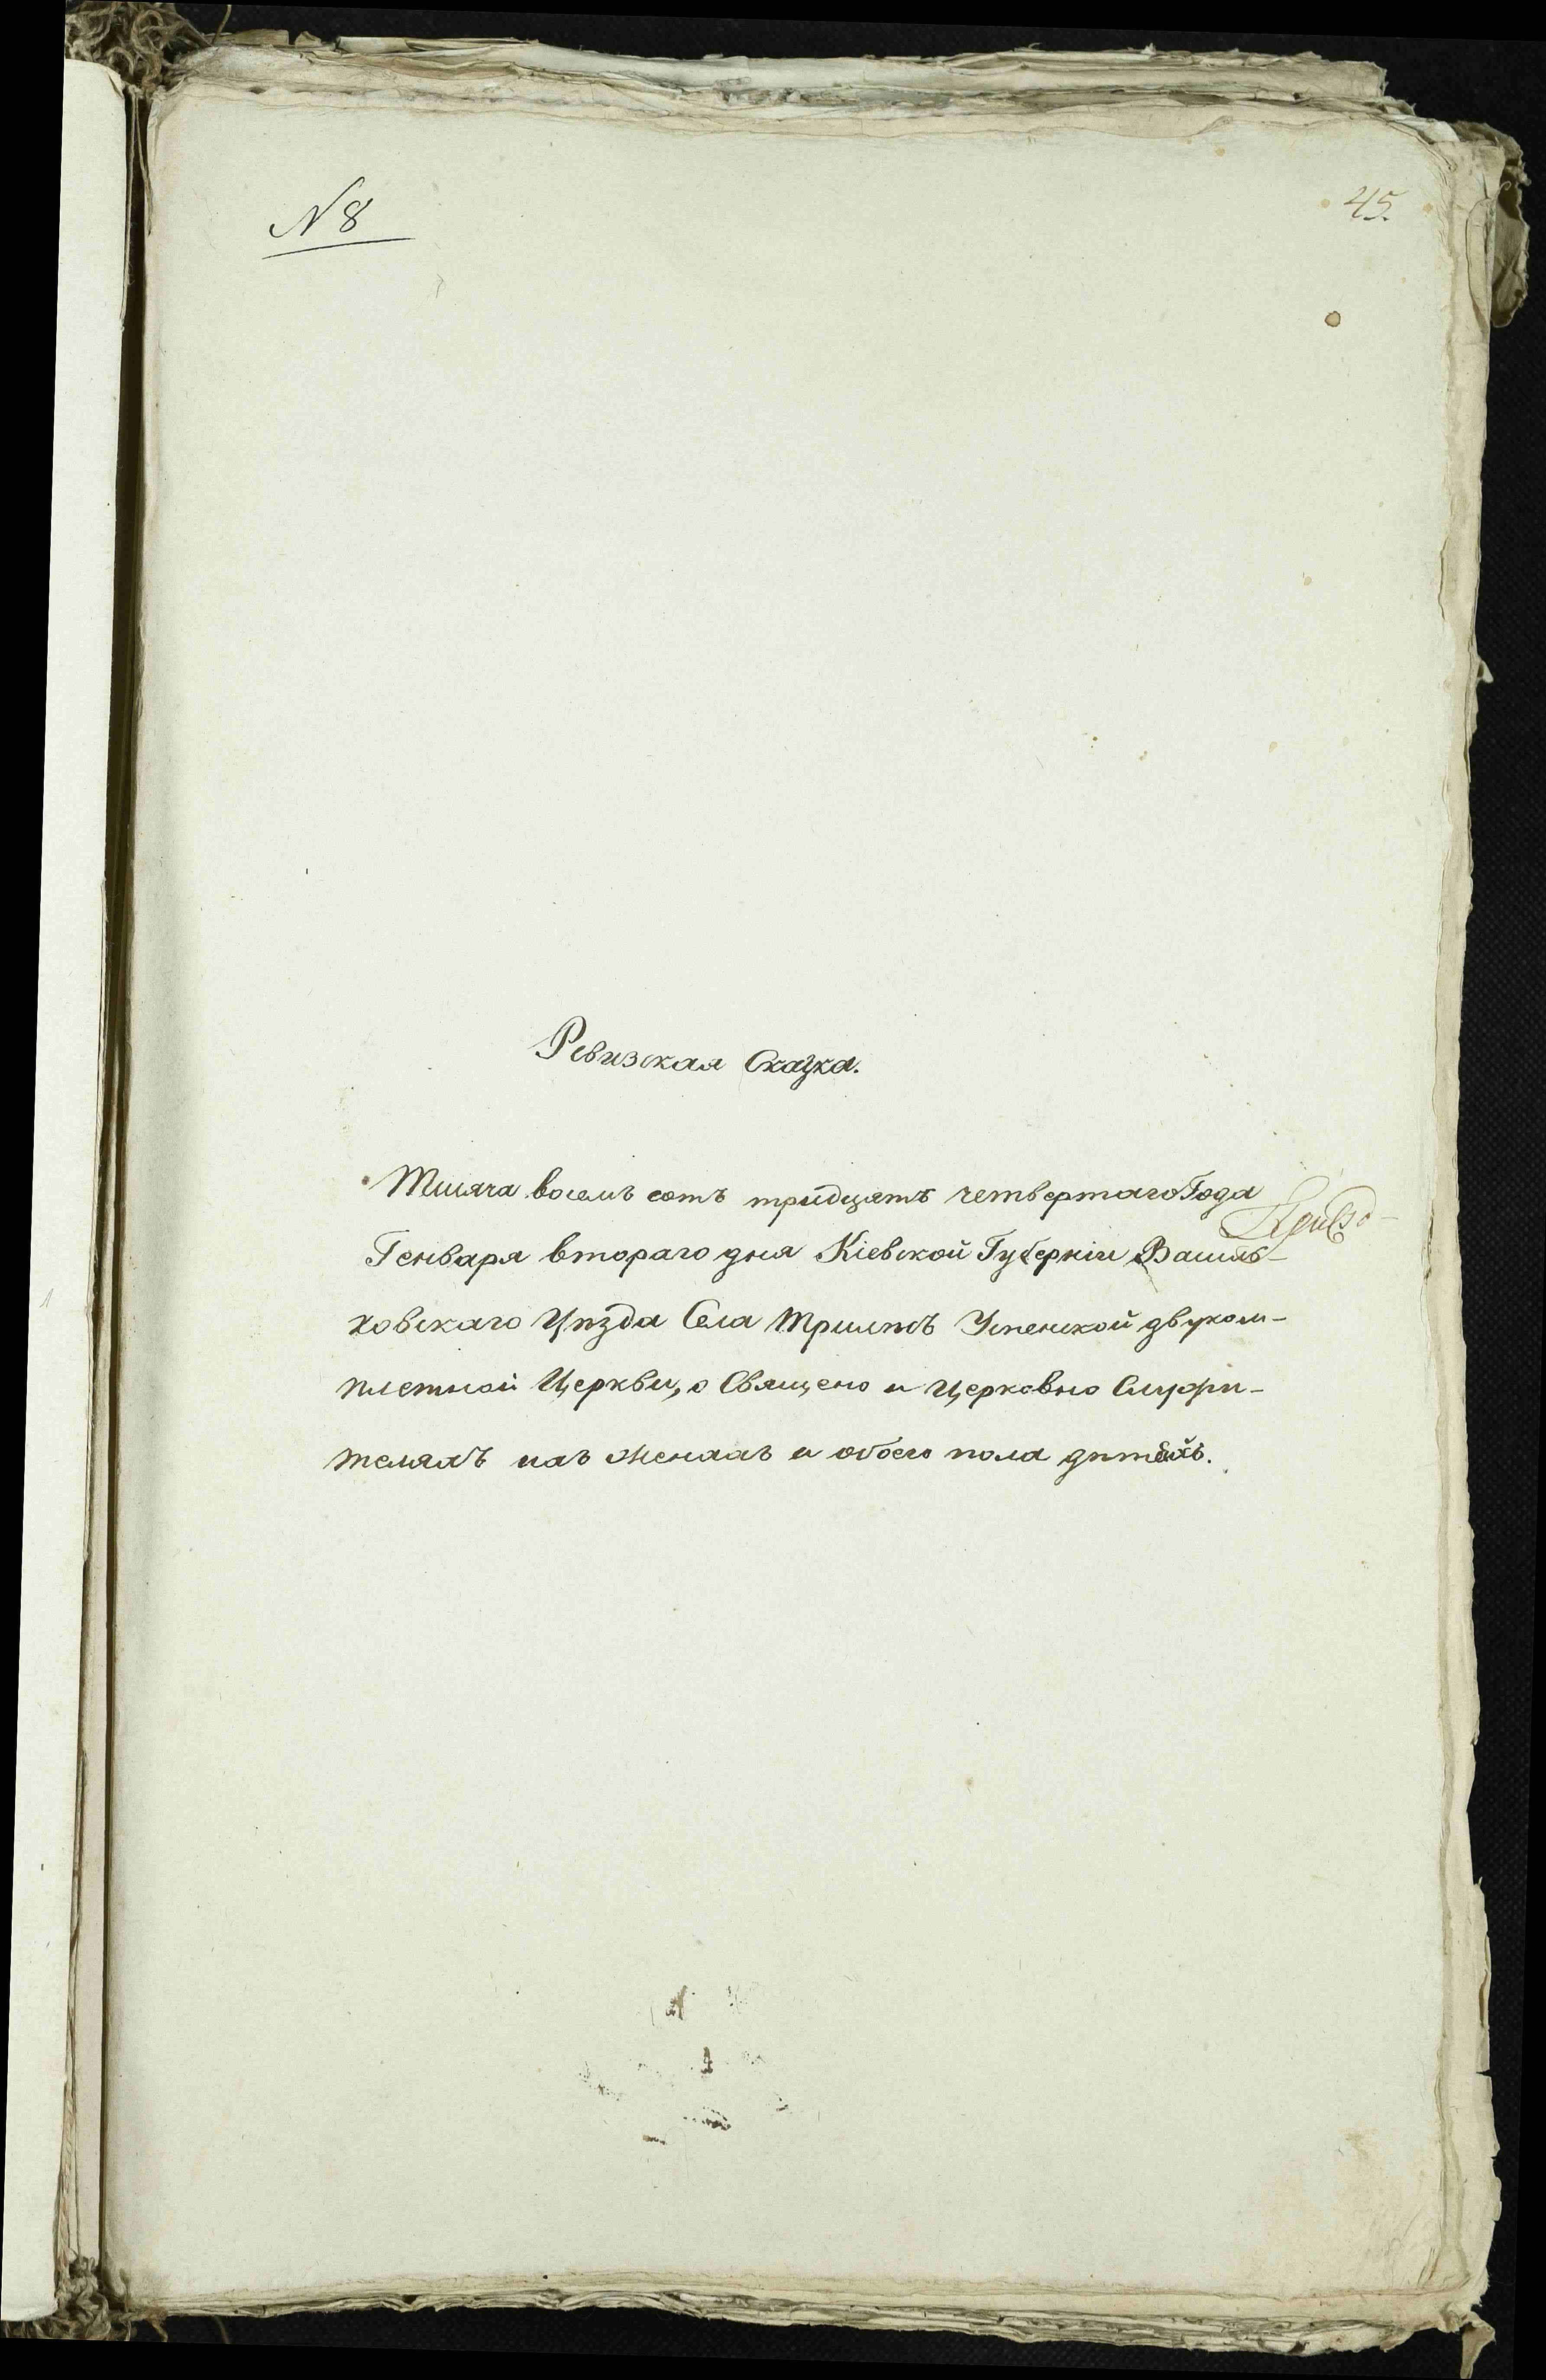 N 8
45.
Ревизская Сказка.
Тысяча восемъ сотъ тридцять четвертаго Года
Генваря втораго дня Кіевской Губерніи Василь-
ковскаго Уѣзда Села Трилѣсъ Успенской двуком-
плетной Церкви, о Священо и Церковно Служи-
теляхъ ихъ женахъ и обоего пола дѣтяхъ.